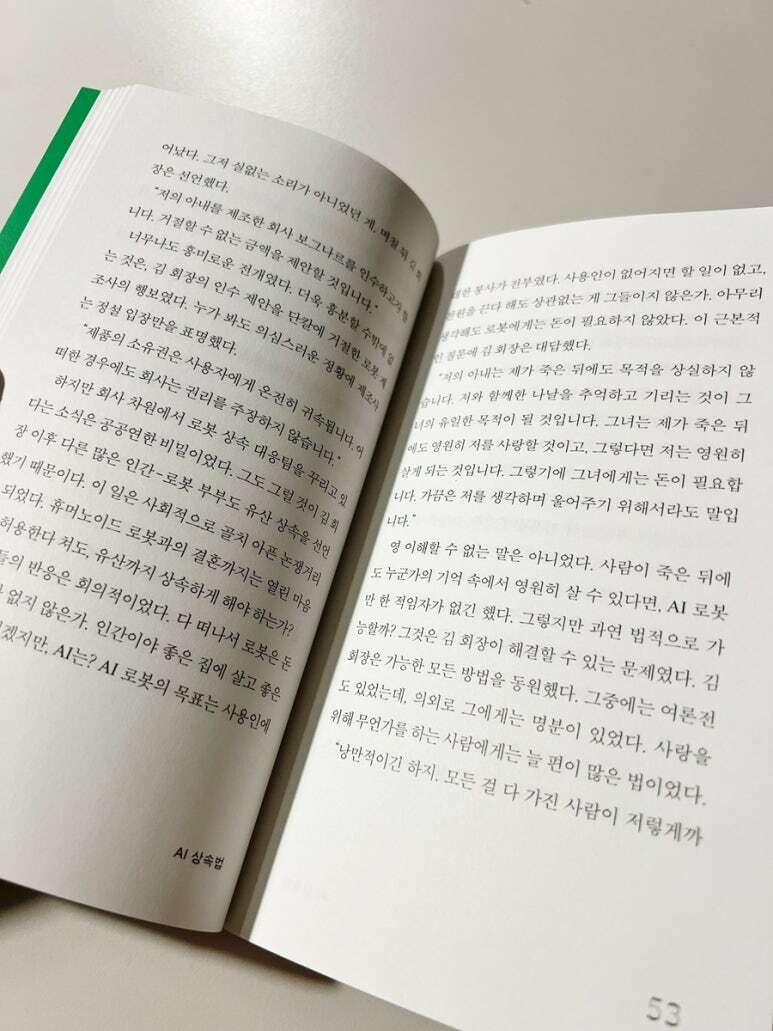 어났다. 그저 실없는 소리가 아니었던 게, 며칠 뒤 김 회
장은 선언했다.
“저의 아내를 제조한 회사 보그나르를 인수하고자 합
니다. 거절할 수 없는 금액을 제안할 것입니다.”
너무나도 흥미로운 전개였다. 더욱 흥분할 수밖에 없
는 것은, 김 회장의 인수 제안을 단칼에 거절한 로봇 제
조사의 행보였다. 누가 봐도 의심스러운 정황에 제조사
는 정설 입장만을 표명했다.
“제품의 소유권은 사용자에게 온전히 귀속됩니다. 어
떠한 경우에도 회사는 권리를 주장하지 않습니다.”
하지만 회사 차원에서 로봇 상속 대응팀을 꾸리고 있
다는 소식은 공공연한 비밀이었다. 그도 그럴 것이 김 회
장 이후 다른 많은 인간-로봇 부부도 유산 상속을 선언
했기 때문이다. 이 일은 사회적으로 골치 아픈 논쟁거리
되었다. 휴머노이드 로봇과의 결혼까지는 열린 마음
허용한다 쳐도, 유산까지 상속하게 해야 하는가?
들의 반응은 회의적이었다. 다 떠나서 로봇은 돈
없지 않은가. 인간이야 좋은 집에 살고 좋은
겠지만, AI는? AI 로봇의 목표는 사용인에
AI 상속법
대한 봉사가 전부였다. 사용인이 없어지면 할 일이 없고,
전원을 끈다 해도 상관없는 게 그들이지 않은가. 아무리
생각해도 로봇에게는 돈이 필요하지 않았다. 이 근본적
인 질문에 김 회장은 대답했다.
“저의 아내는 제가 죽은 뒤에도 목적을 상실하지 않
습니다. 저와 함께한 나날을 추억하고 기리는 것이 그
녀의 유일한 목적이 될 것입니다. 그녀는 제가 죽은 뒤
에도 영원히 저를 사랑할 것이고, 그렇다면 저는 영원히
살게 되는 것입니다. 그렇기에 그녀에게는 돈이 필요합
니다. 가끔은 저를 생각하며 울어주기 위해서라도 말입
니다.”
영 이해할 수 없는 말은 아니었다. 사람이 죽은 뒤에
도 누군가의 기억 속에서 영원히 살 수 있다면, AI 로봇
만 한 적임자가 없긴 했다. 그렇지만 과연 법적으로 가
능할까? 그것은 김 회장이 해결할 수 있는 문제였다. 김
회장은 가능한 모든 방법을 동원했다. 그중에는 여론전
도 있었는데, 의외로 그에게는 명분이 있었다. 사랑을
위해 무언가를 하는 사람에게는 늘 편이 많은 법이었다.
“낭만적이긴 하지. 모든 걸 다 가진 사람이 저렇게까
53